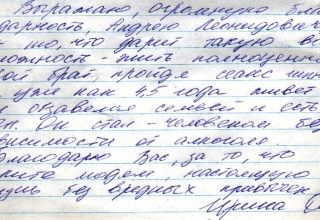 Выражаю, огромную бла
дарность, Андрею Леонидович
за то, что дарит такую во
можность - жить полноценно
ой брат, пройдя сеанс
уже как 4,5 года живет
и обзавелся семьёй и есть
Он стал - человеком без
висимости от алкоголя.
благодарю Вас, за то, что
людям, настоящую
без вредных привычек
Ирина